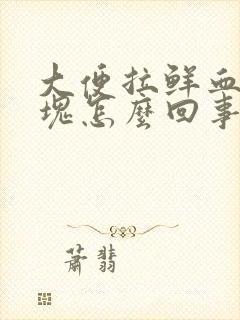 大便拉鲜血
块怎麽回事
萧翡